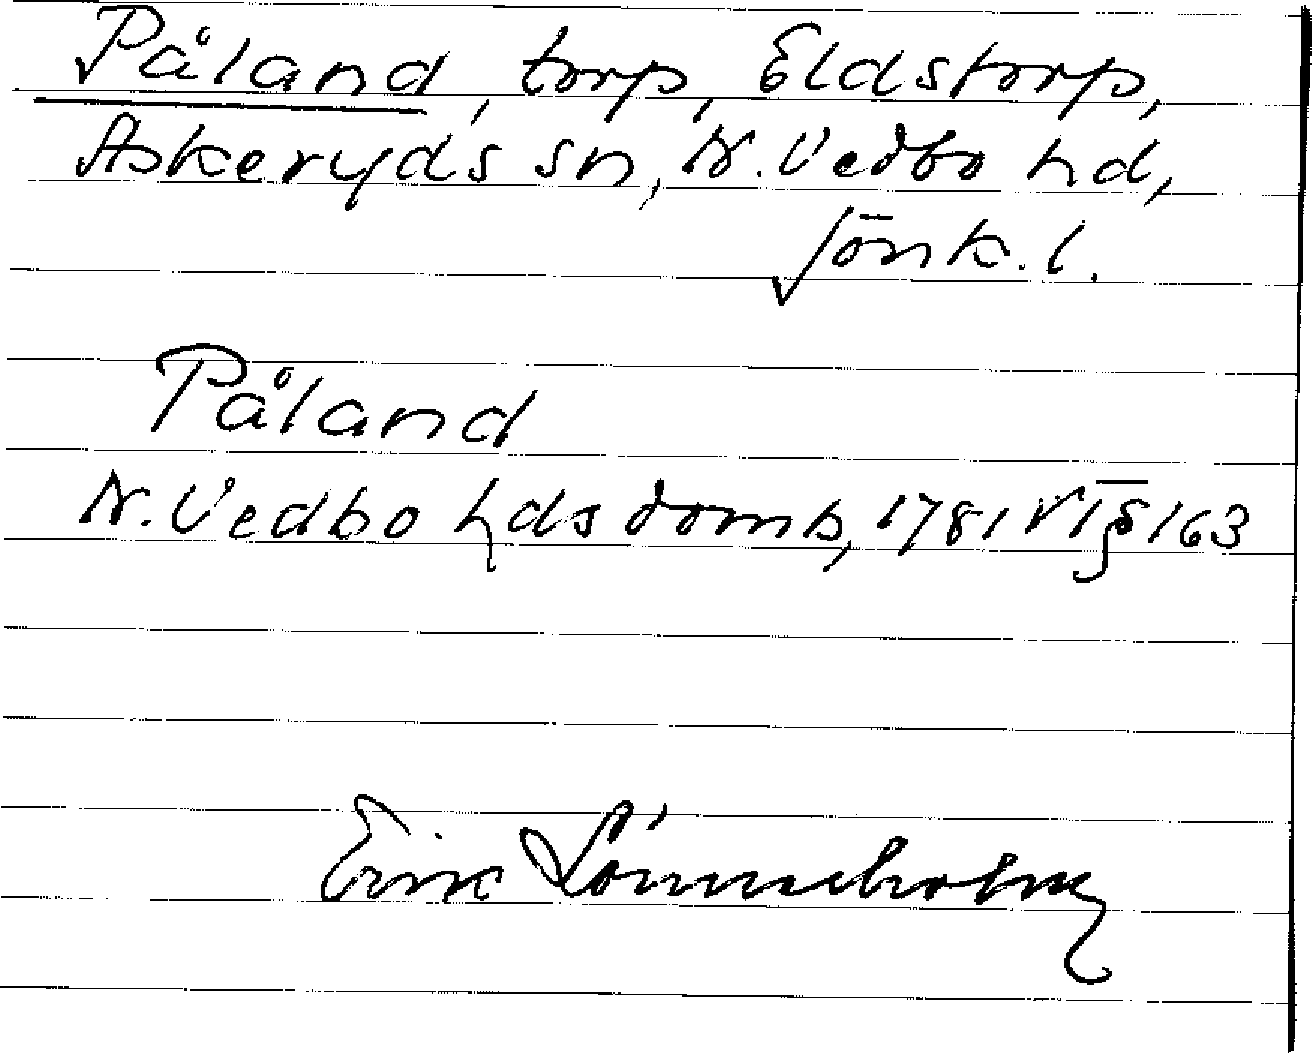 Påland, torp, Eldstorp,
Askeryds sn, N. Vedbo hd,
Jönk. l.
Påland
N. Vedbo hds domb, 1781 VT § 163
Erik